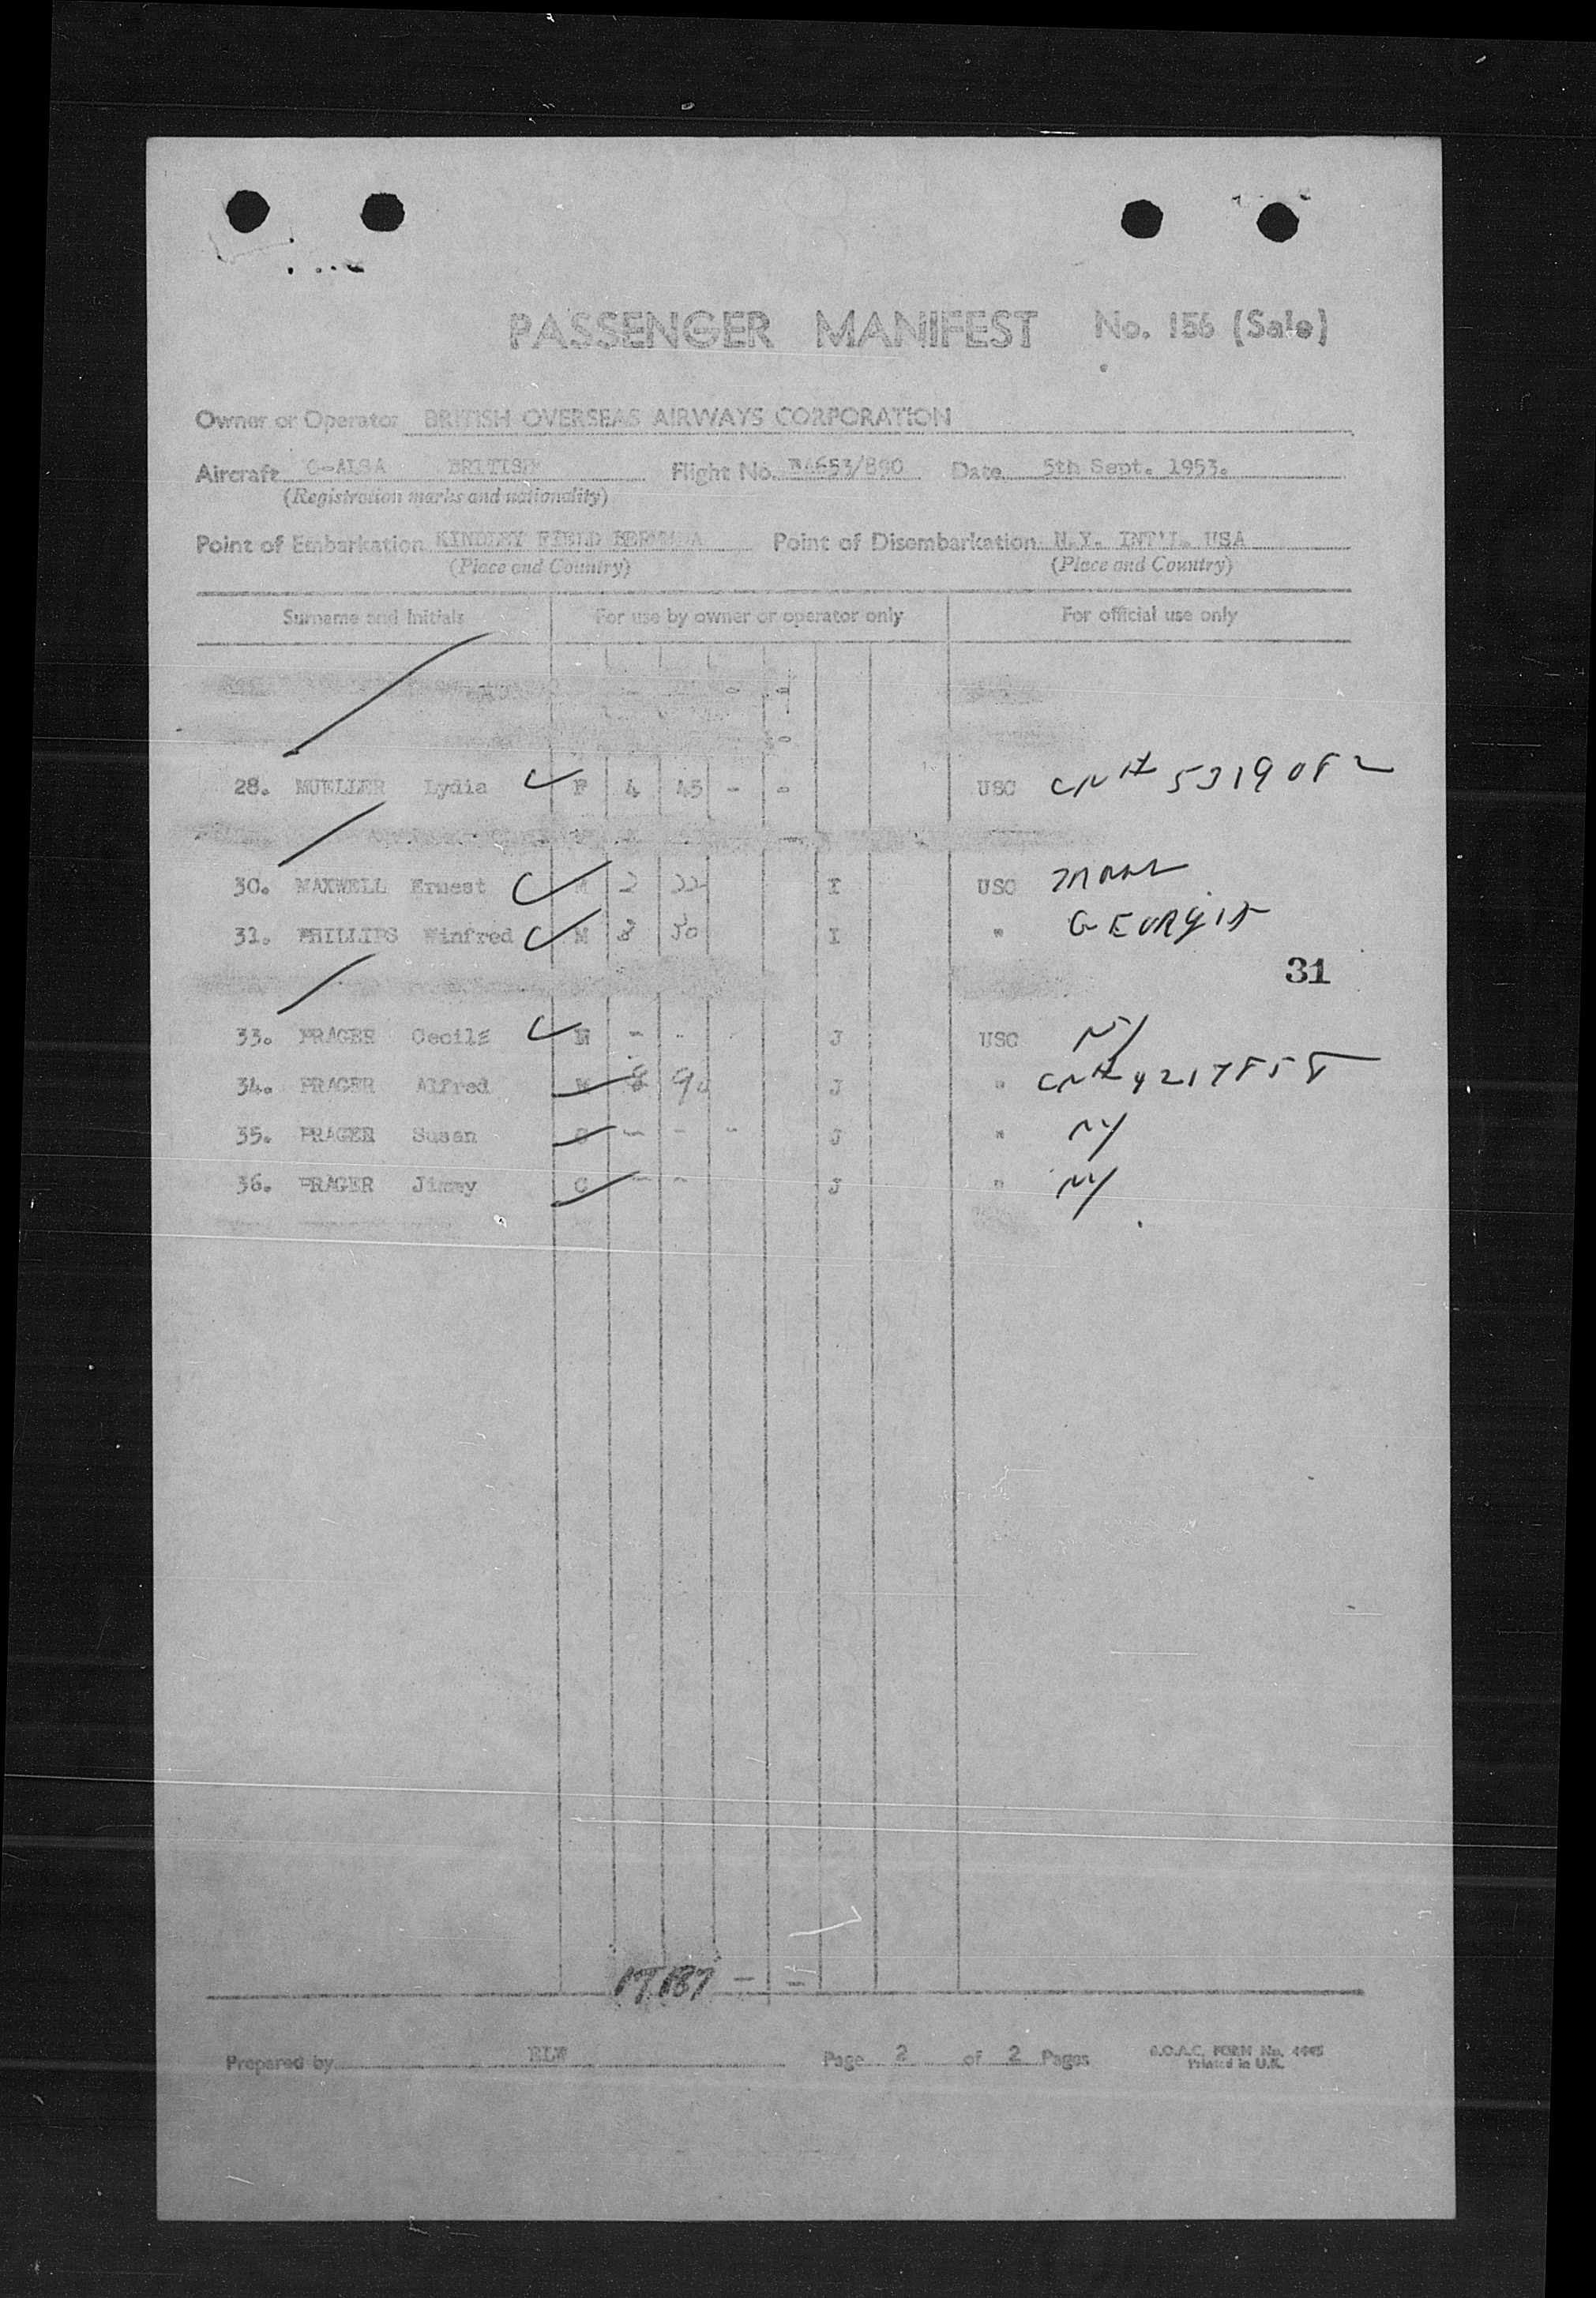 PASSENGER MANIFEST No. 156 (Sale)
Owner or Operator BRITISH OVERSEAS AIRWAYS CORPORATION
Aircraft G-ALSA BRITISH Flight No. BA653/890 Date 5th Sept. 1953.
(Registration marks and nationality)
Point of Embarkation KINDLEY FIELD BERMUDA Point of Disembarkation N.Y. INT'L. USA
(Place and Country) (Place and Country)
Surname and Initials For use by owner or operator only For official use only
28. MUELLER Lydia F 4 45 - - USC CN# 5319082
30. MAXWELL Ernest M 2 22 I USC
31. PHILLIPS Winfred M 3 50 I " GEORGIA
31
33. PRAGER Cecile - - J USC NY
34. PRAGER Alfred M 8 90 J " CN# 4217858
35. PRAGER Susan C - - - J " NY
36. PRAGER Jimmy C - - J " NY
17 187 - -
Prepared by RLW Page 2 of 2 Pages B.O.A.C. FORM No. 4445
Printed in U.K.